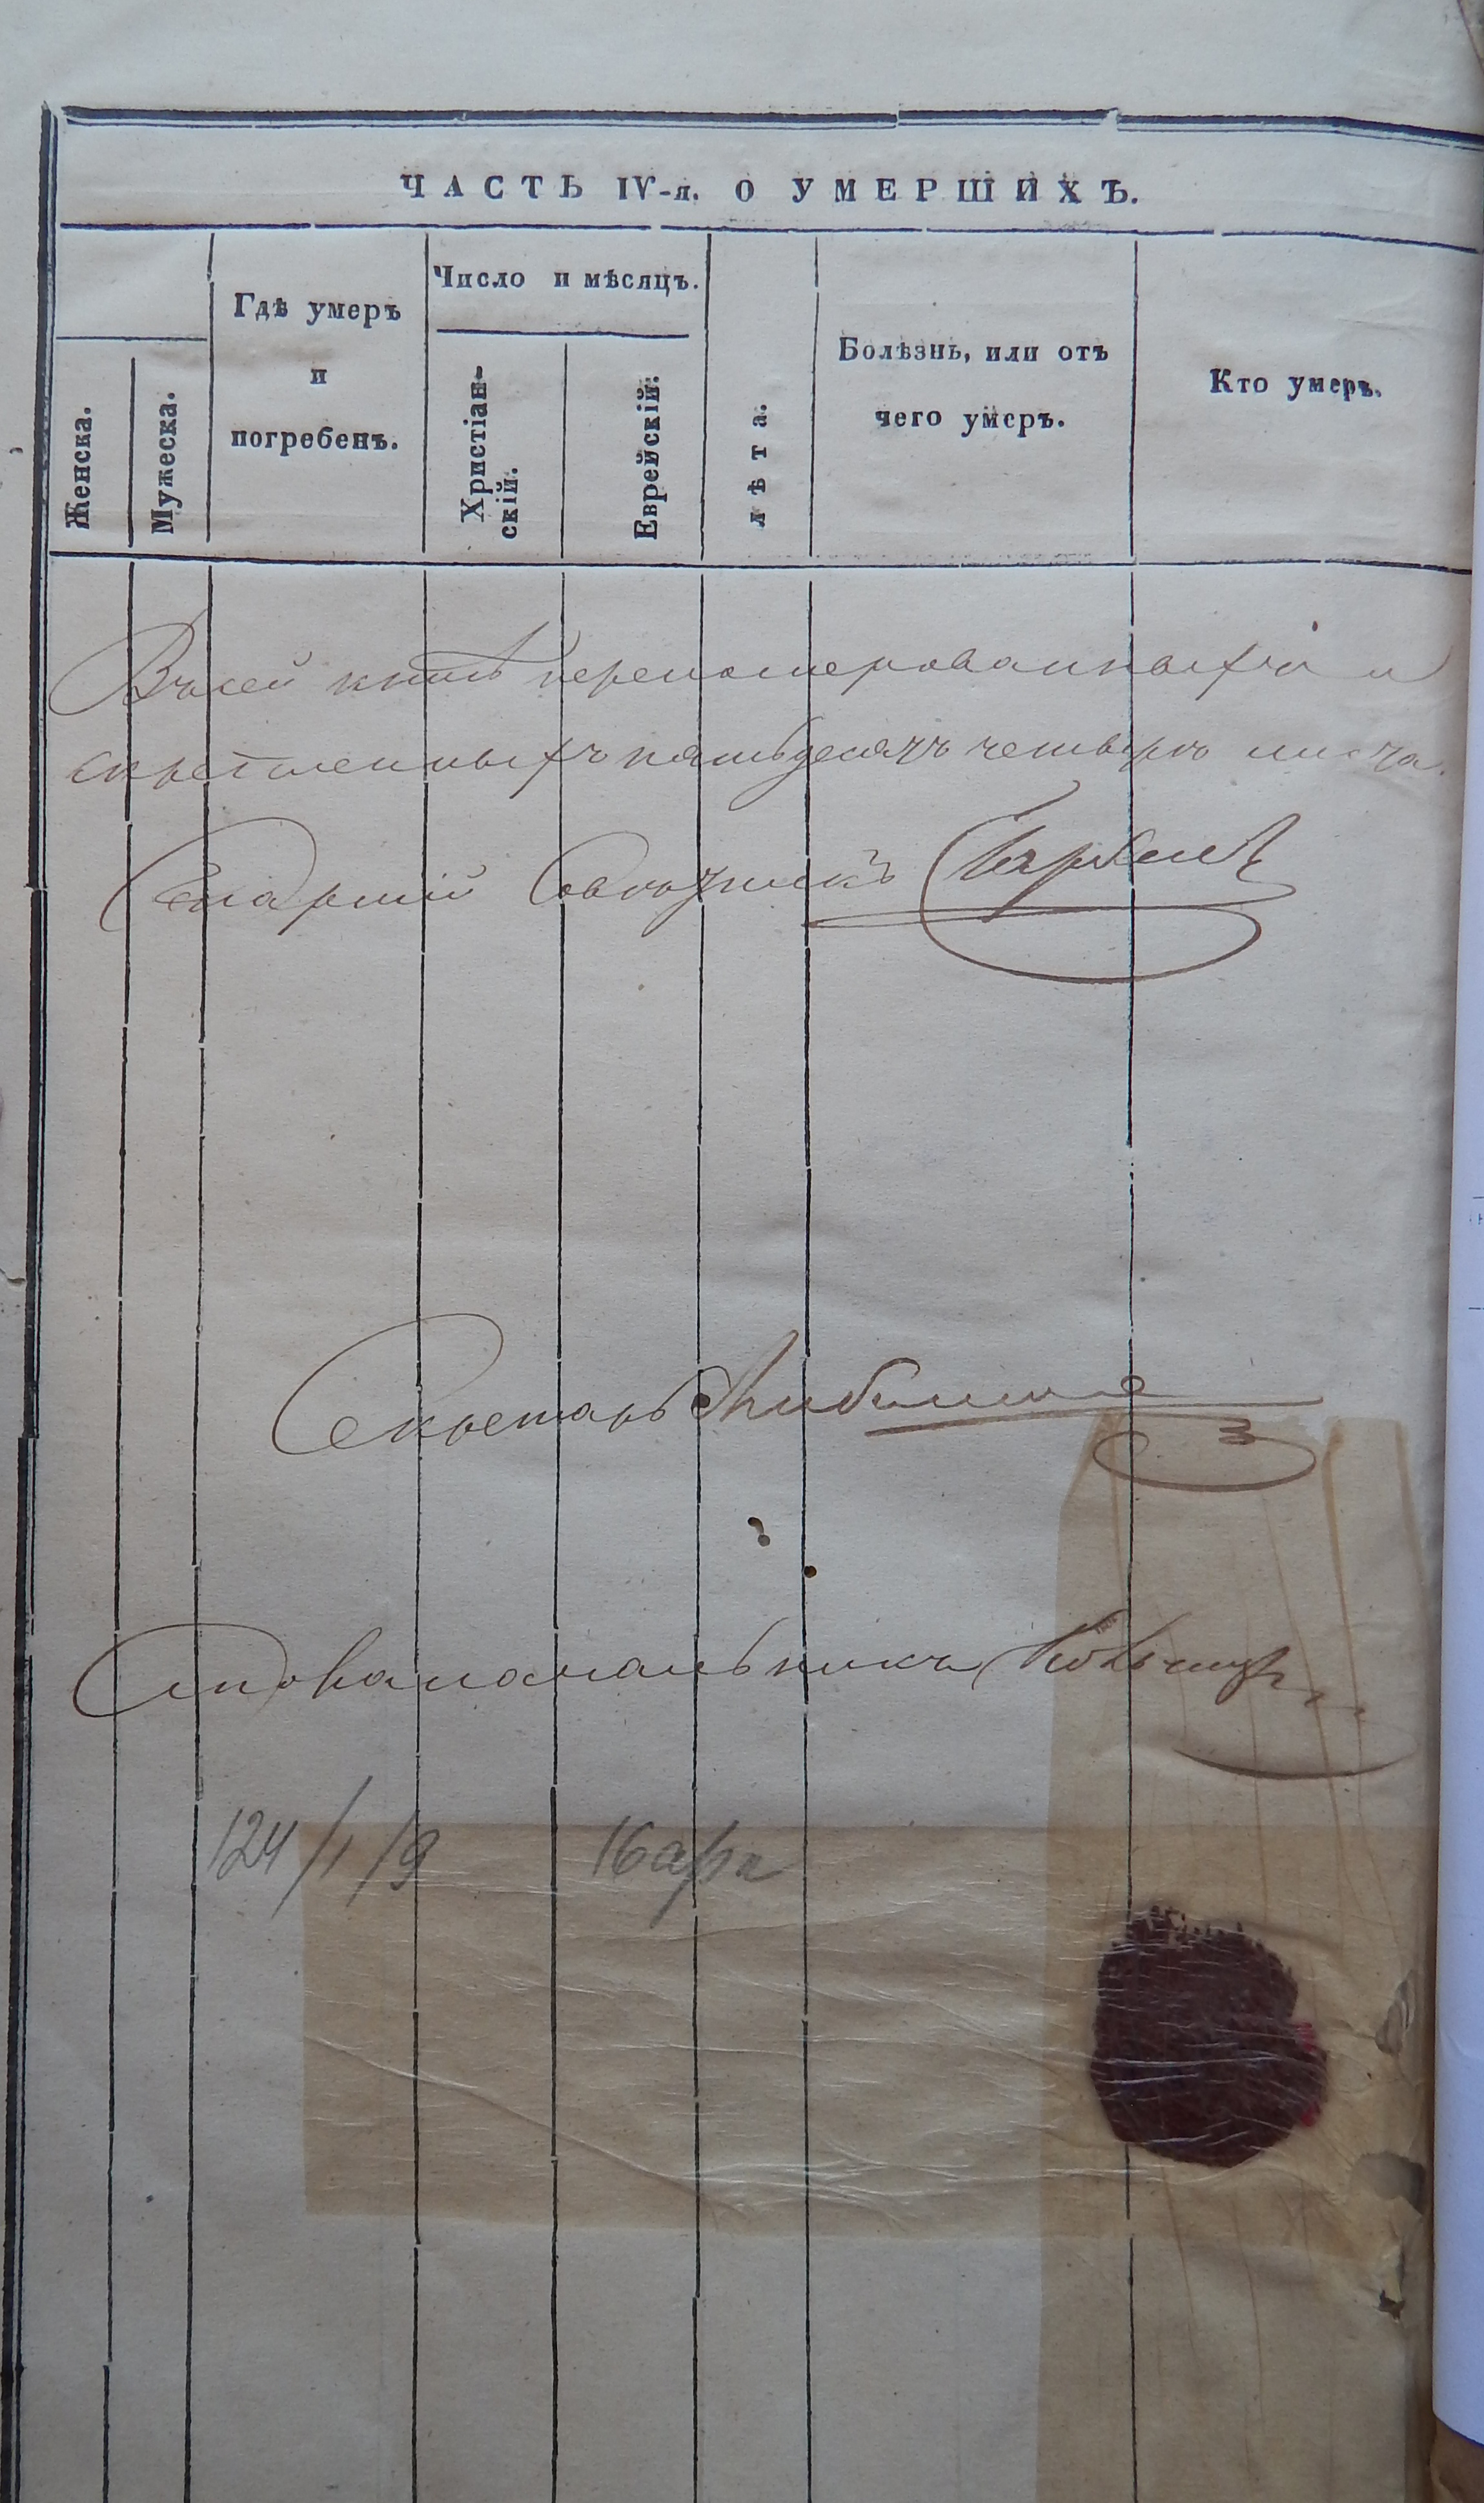 ЧАСТЬ IV-я. О УМЕРШИХЪ.
Женска.
Мужеска.
Гдѣ умеръ
и
погребенъ.
Число и мѣсяцъ.
Христіан-
скій.
Еврейскій.
лѣта.
Болѣзнь, или отъ
чего умеръ.
Кто умеръ.
Въ сей книгѣ перенумерованныхъ и
скрепленныхъ пятьдесятъ четыре листа.
Старшій Совѣтникъ
Секретарь
Столоначальникъ
124/1/9 16 арк